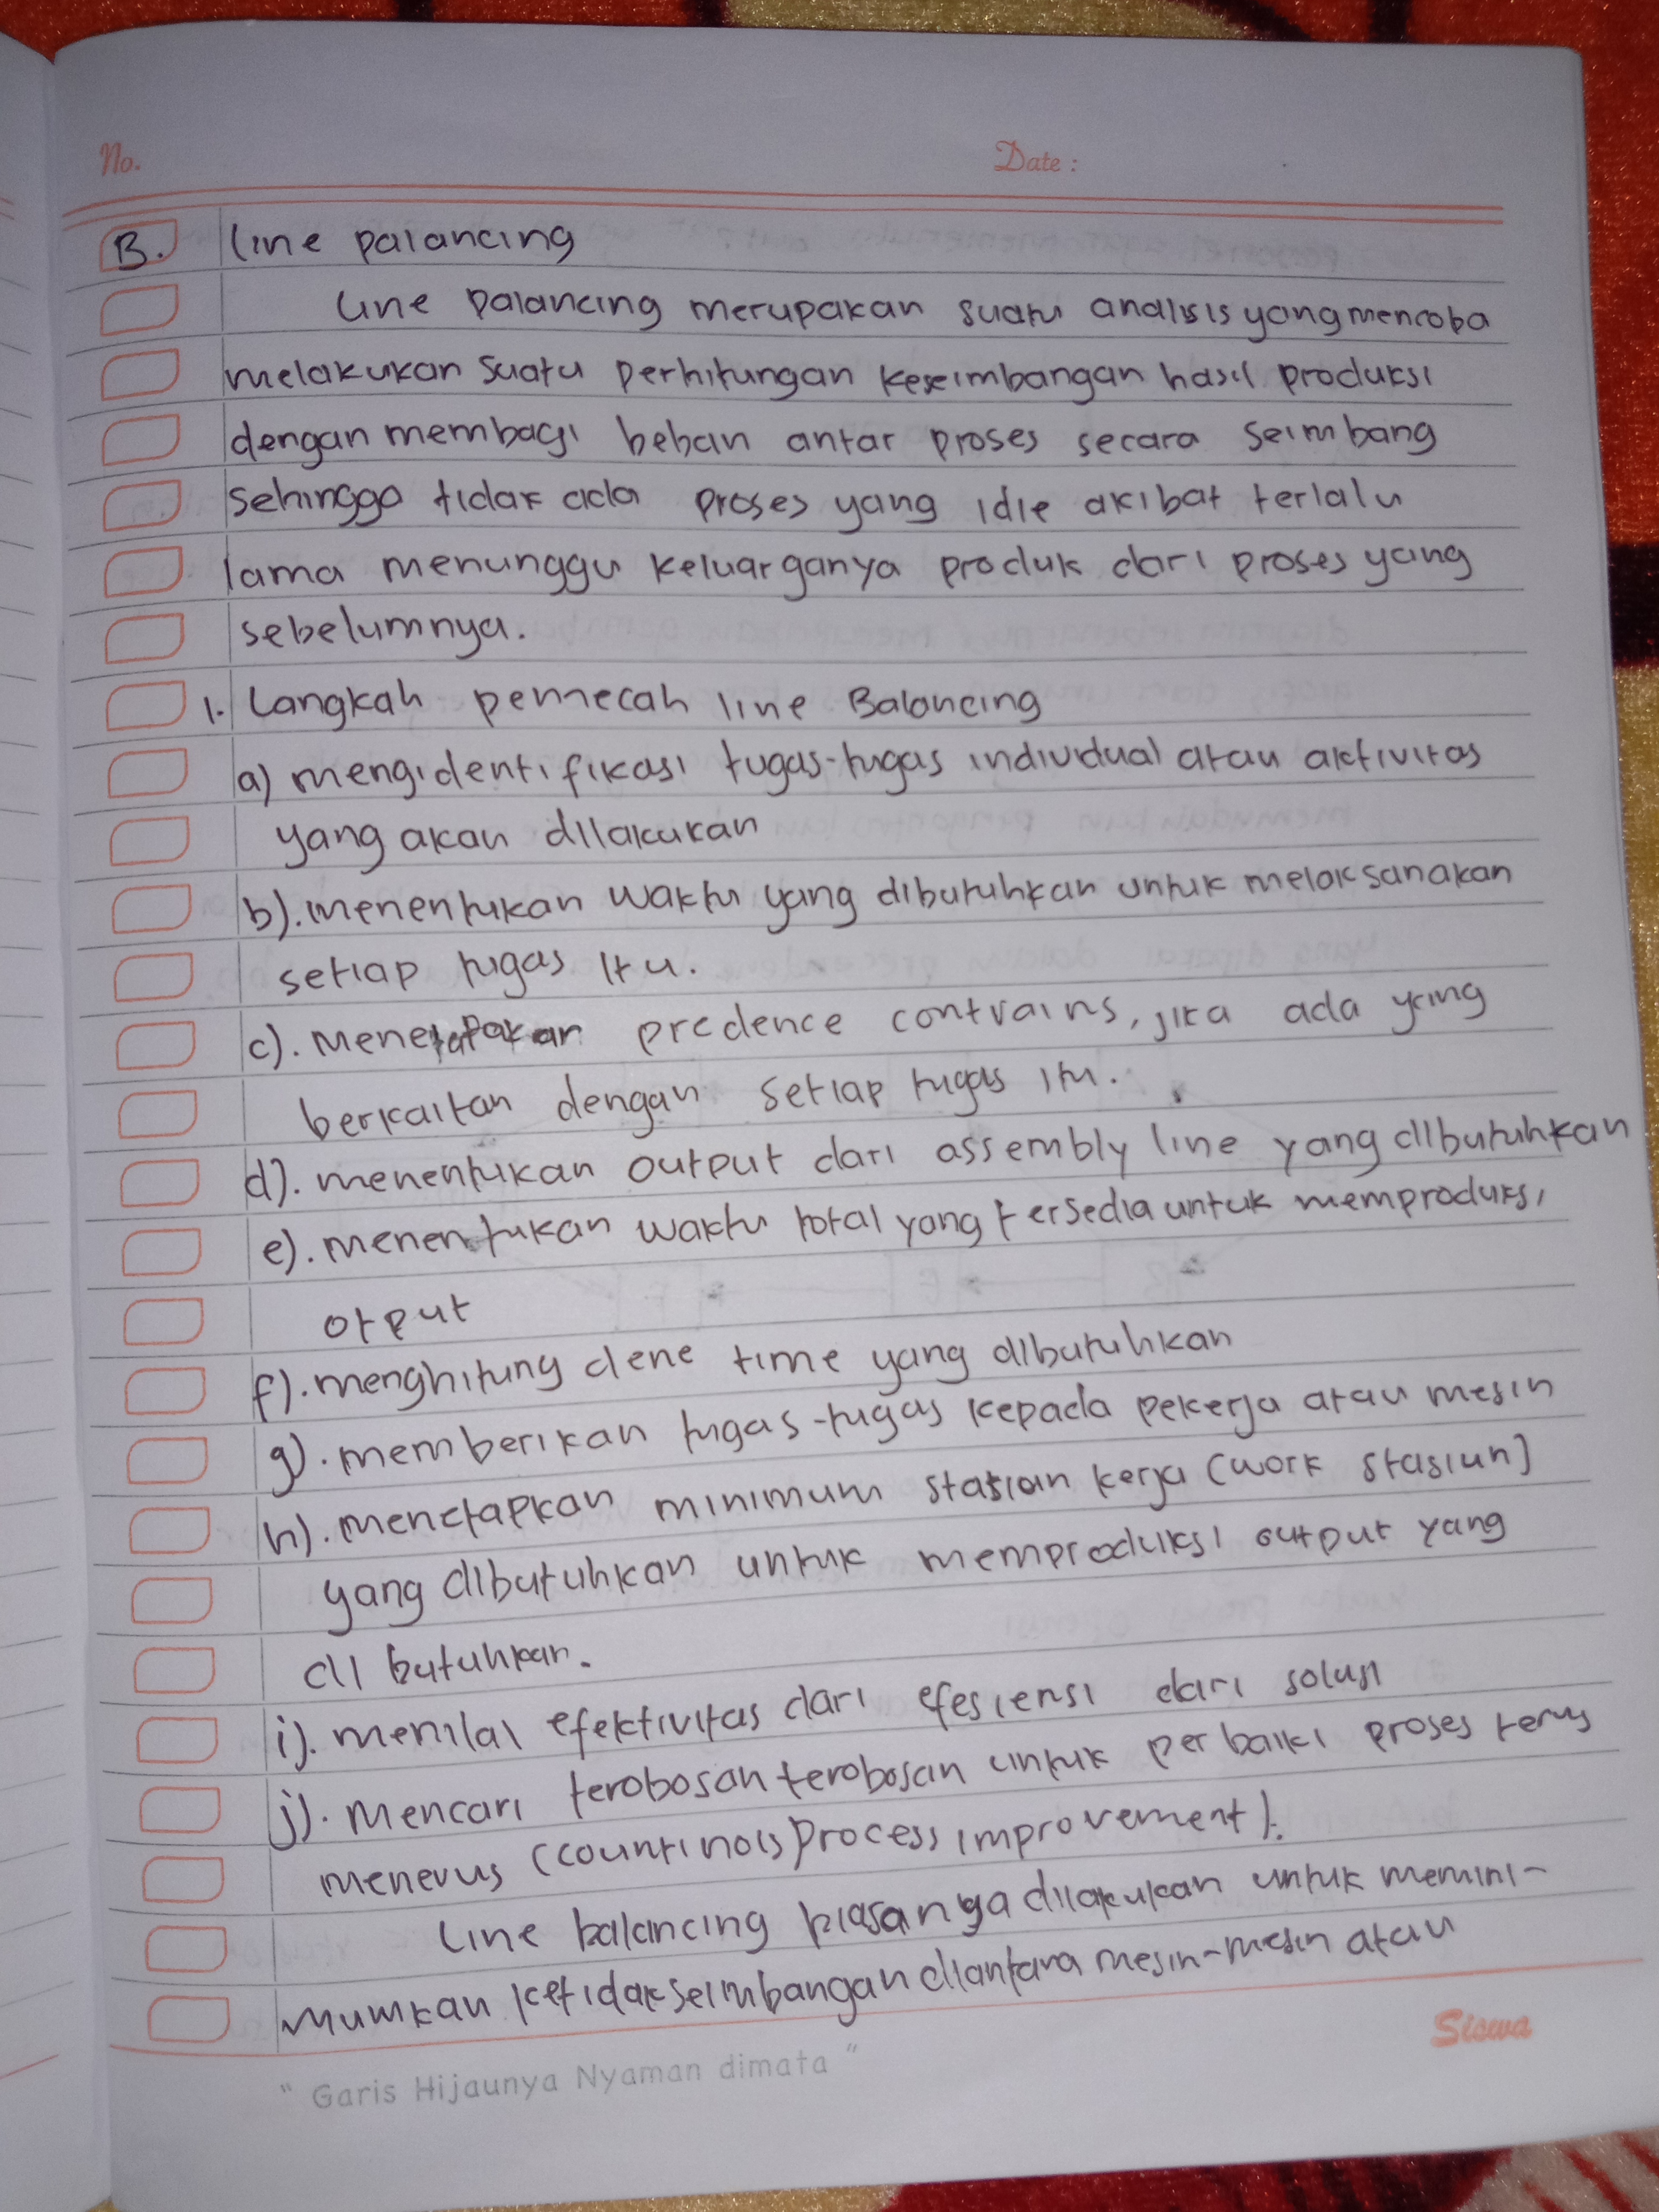 No.
Date :
B. line palancing
Line palancing merupakan suatu analisis yang mencoba
melakukan suatu perhitungan keseimbangan hasil produksi
dengan membagi beban antar proses secara seimbang
sehingga tidak ada proses yang idle akibat terlalu
lama menunggu keluarganya produk dari proses yang
sebelumnya.
1. Langkah pemecah line Balancing
a) mengidentifikasi tugas-tugas individual atau aktivitas
yang akan dilakukan
b). menentukan waktu yang dibutuhkan untuk melaksanakan
setiap tugas itu.
c). menetapakan predence contrains, jika ada yang
berkaitan dengan setiap tugas itu.
d). menentukan output dari assembly line yang dibutuhkan
e). menentukan waktu total yang tersedia untuk memproduksi
otput
f). menghitung clene time yang dibutuhkan
g). memberikan tugas-tugas kepada pekerja atau mesin
h). menetapkan minimum stasian kerja (work stasiun)
yang dibutuhkan untuk memproduksi output yang
di butuhkan.
i). menilai efektivitas dari efesiensi dari solusi
j). mencari terobosan terobosan untuk perbaiki proses terus
menerus (countinois process improvement).
Line balancing biasanya dilakukan untuk memini-
mumkan ketidakseimbangan diantara mesin-mesin atau
Siswa
" Garis Hijaunya Nyaman dimata "